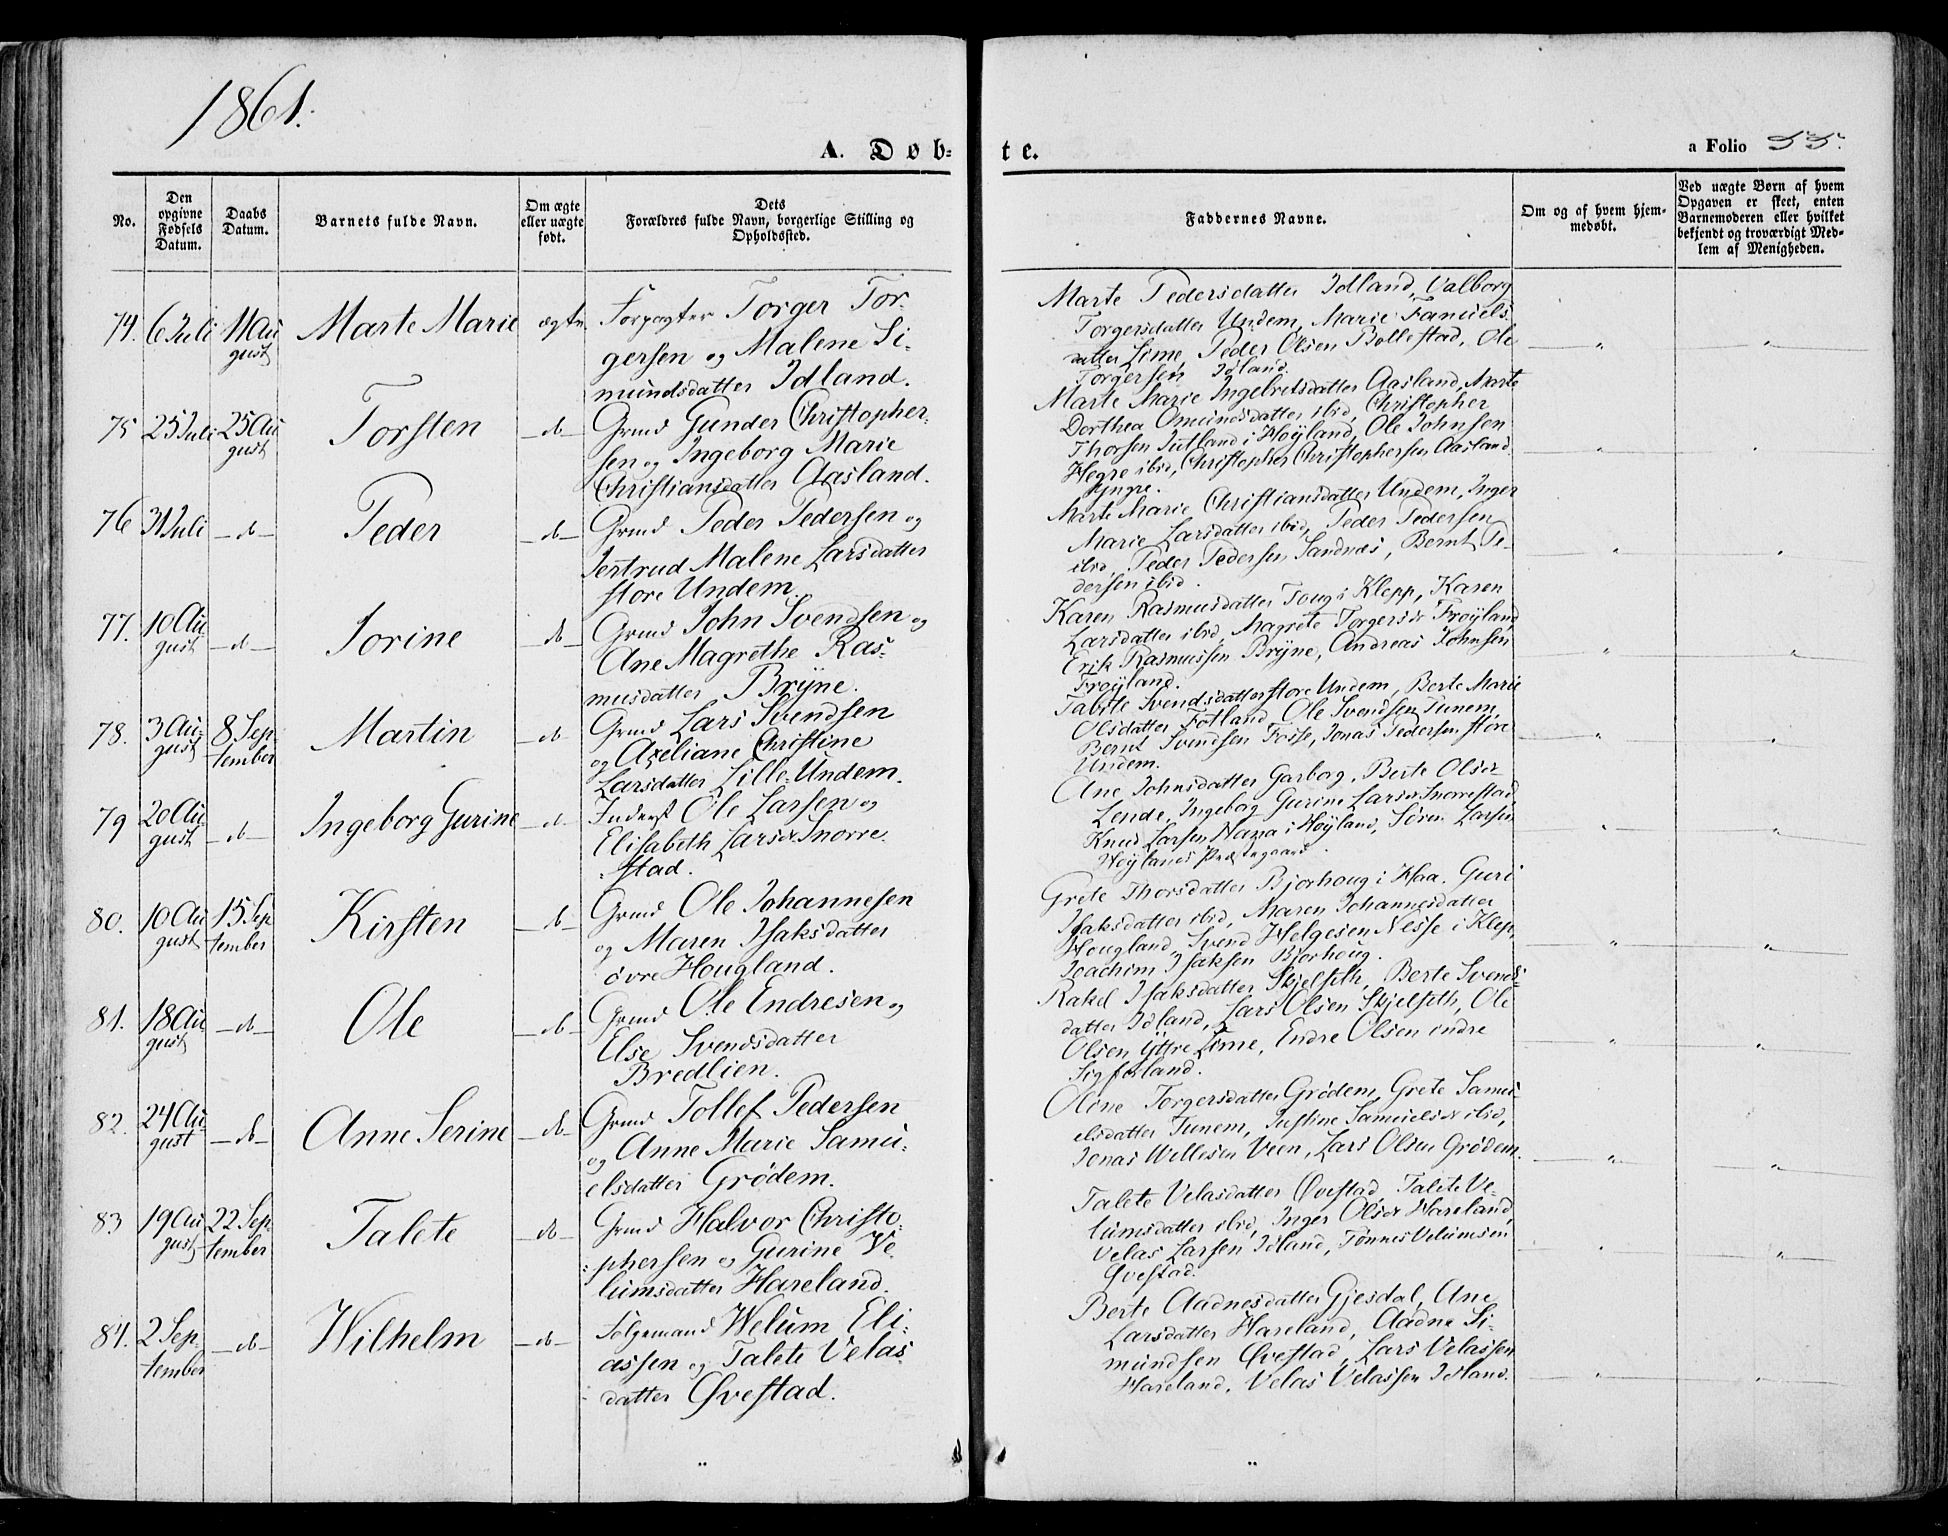 1861.
A. Døb-
te.
a Folio 55.
No.
Den
opgivne
Fødsels
Datum.
Daabs
Datum.
Barnets fulde Navn.
Om ægte
eller uægte
født.
Dets
Forældres fulde Navn, borgerlige Stilling og
Opholdssted.
Faddernes Navne.
Om og af hvem hjem-
medøbt.
Ved uægte Børn af hvem
Opgaven er skeet, enten
Barnemoderen eller hvilket
bekjendt og troværdigt Med-
lem af Menigheden.
74. 6 Juli 11 Au
gust
Marte Marie ægte
Forpagter Torger Tor-
gersen og Malene Si-
mundsdatter Idland.
Marte Pedersdatter Idland, Valborg
Torgersdatter Undem, Marie Samuels
datter Lime, Peder Olsen Bollestad, Ole
Torgersen Idland.
75 25 Juli 25 Au
gust
Torsten -do-
Grmd Gunder Christopher-
sen og Ingeborg Marie
Christiansdatter Aasland.
Marte Marie Ingebretsdatter Aasland, Marte
Dorthea Omundsdatter ibid, Christopher
Thorsen Jutland i Høyland, Ole Johnsen
Hegre ibid, Christopher Christophersen Aasland
yngre.
76 31 Juli -do-
Peder -do-
Grmd Peder Pedersen og
Jertrud Malene Larsdatter
store Undem.
Marte Marie Christiansdatter Undem, Inger
Marie Larsdatter ibid, Peder Pedersen
ibid, Peder Pedersen Sandnæs, Bernt Pe-
dersen ibid.
77. 10 Au
gust -do-
Sorine do
Grmd John Svendsen og
Ane Magrethe Ras-
musdatter Bryne.
Karen Rasmusdatter Toug i Klepp, Karen
Larsdatter ibid, Magrete Torgersdr Frøyland
Erik Rasmussen Bryne, Andreas Johnsen
Frøyland.
78. 3 Au-
gust 8 Sep
tember
Martin -do
Grmd Lars Svendsen
og Axeliane Christine
Larsdatter Lille-Undem.
Talete Svendsdatter store Undem, Berte Marie
Olsdatter Fotland, Ole Svendsen Tunem,
Bernt Svendsen Fosse, Jonas Pedersen store
Undem.
79 20 Au
gust -do-
Ingeborg Gurine -do-
Inderst Ole Larsen og
Elisabeth Larsdr Snorre-
stad.
Ane Johnsdatter Garborg, Berte Olsdr
Lende, Ingeborg Gurine Larsdr Snorrestad,
Knud Larsen Hana i Høyland, Søren Larsen
Høylands Præstegaard.
80. 10 Au
gust 15 Sep
tember
Kirsten -do-
Grmd Ole Johannesen
og Maren Isaksdatter
øvre Hougland.
Grete Thorsdatter Bjorhoug i Haa. Guri
Isaksdatter ibid, Maren Johannesdatter
Hougland, Svend Helgesen Nesse i Klep,
Joachim Isaksen Bjorhoug.
81. 18 Au
gust -do-
Ole -do-
Grmd Ole Endresen og
Else Svendsdatter
Bredlien.
Rakel Isaksdatter Skjelseth, Berte Svends-
datter Idland, Lars Olsen Skjelseth, Ole
Olsen Yttre Lime, Endre Olsen indre
Sigfesland.
82. 24 Au-
gust -do-
Anne Serine -do-
Grmd Tollef Pedersen
og Anne Marie Samu-
elsdatter Grødem.
Oline Torgersdatter Grødem, Grete Samu
elsdatter Tunem, Justine Samuelsdr ibid,
Jonas Willesen Veen, Lars Olsen Grødem.
83 19 Au
gust 22 Sep
tember
Talete -do-
Grmd Halvor Christo-
phersen og Gurine Ve-
lumsdatter Hareland.
Talete Velasdatter Øvestad, Talete Ve-
lumsdatter ibid, Inger Olsdr Hareland,
Velas Larsen Idland, Tønnes Velumsen
Øvestad.
84. 2 Sep-
tember -do-
Wilhelm -do-
Følgemand Welum Eli-
assen og Talete Velas
datter Øvestad.
Berte Aadnesdatter Gjesdal, Ane
Larsdatter Hareland, Aadne Si-
mundsen Øvestad, Lars Velassen
Hareland, Velas Velassen Idland.